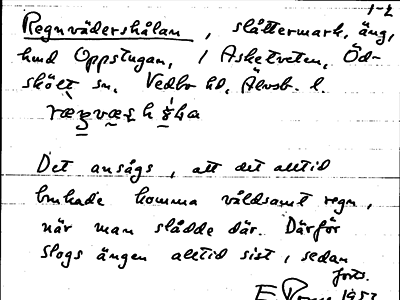 1-2
Regnvädershålan, slåttermark, äng,
hmd Oppstugan, 1 Asketveten, Öd-
skölt sn, Vedbo hd, Älvsb. l.
Det ansågs, att det alltid
brukade komma våldsamt regn,
när man slådde där. Därför
slogs ängen alltid sist, sedan
forts.
E 1957